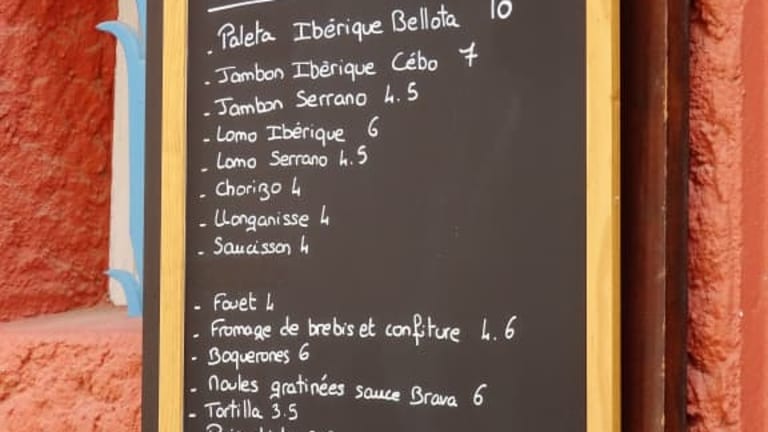 - Paleta Ibérique Bellota 10
- Jambon Ibèrique Cébo 7
- Jambon Serrano 4.5
- Lomo Ibérique 6
- Lomo Serrano 4.5
- Chorizo 4
- LLonganisse 4
- Saucisson 4
- Fouet 4
- Fromage de brebis et confiture 4.6
- Boquerones 6
- Moules gratinées sauce Brava 6
- Tortilla 3.5